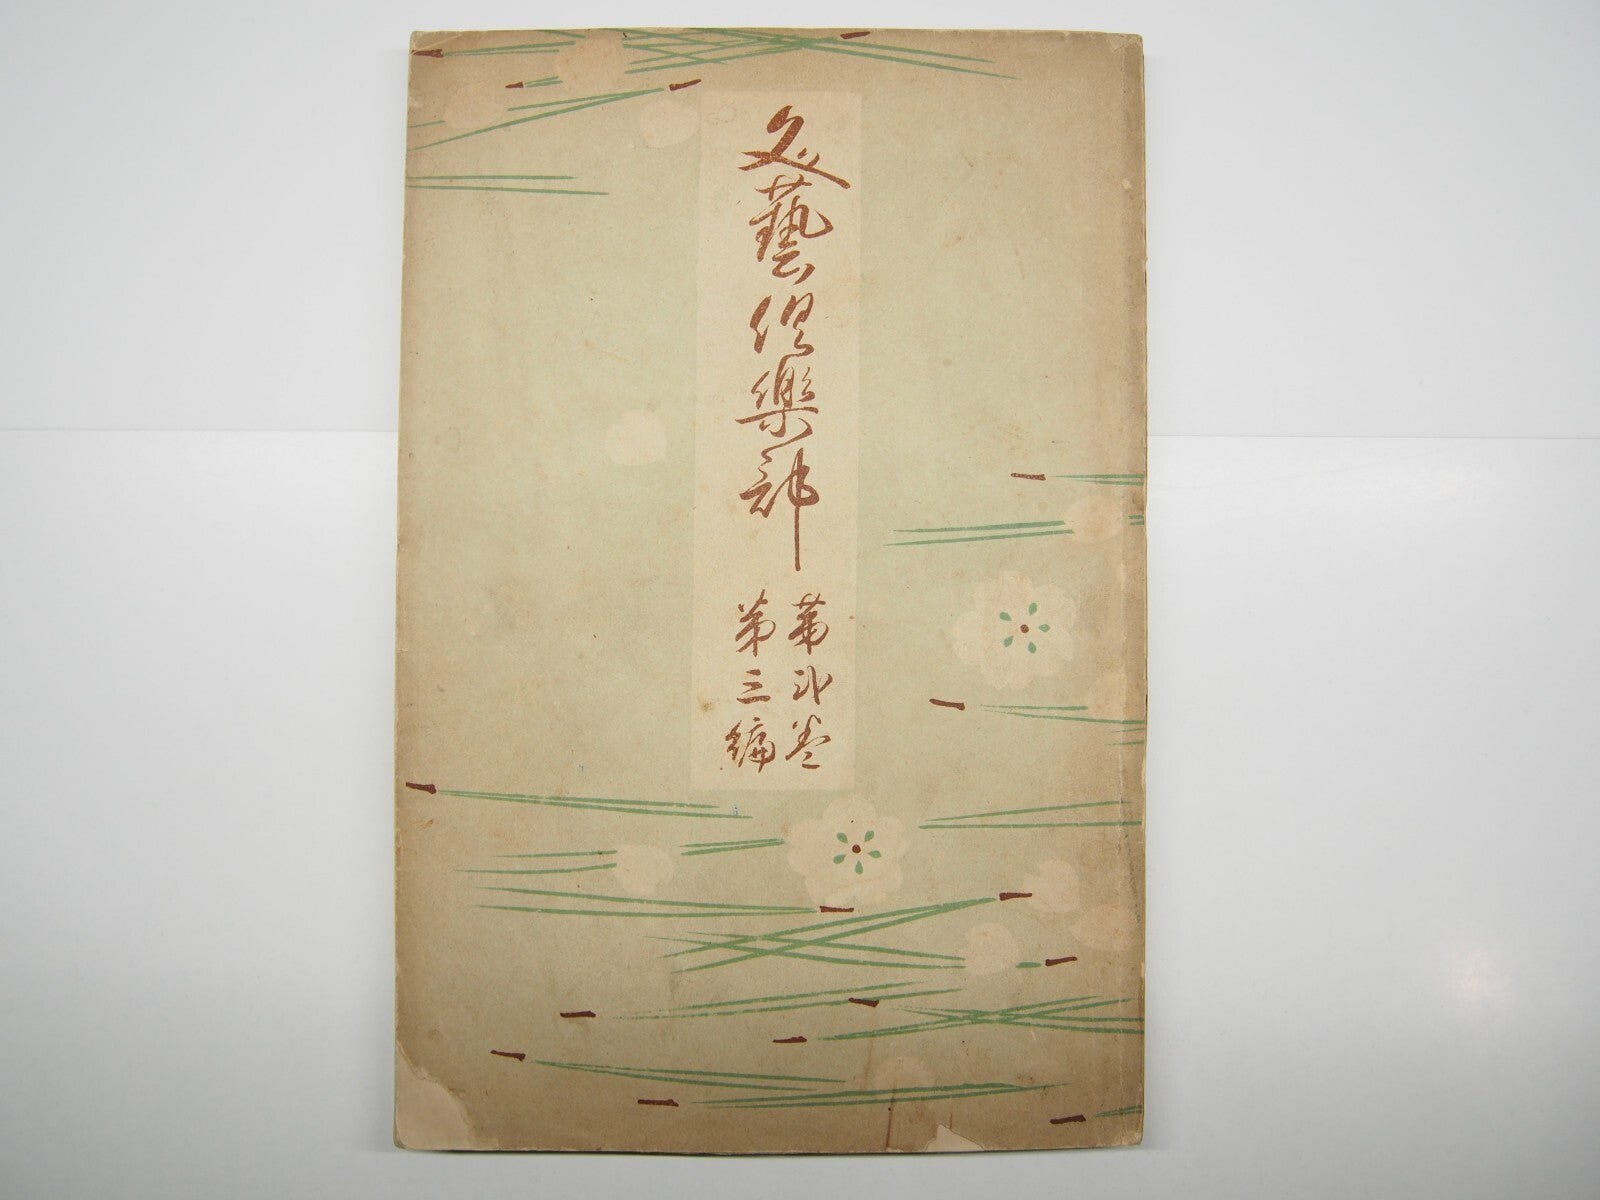 文藝倶楽部
第弐巻
第三編